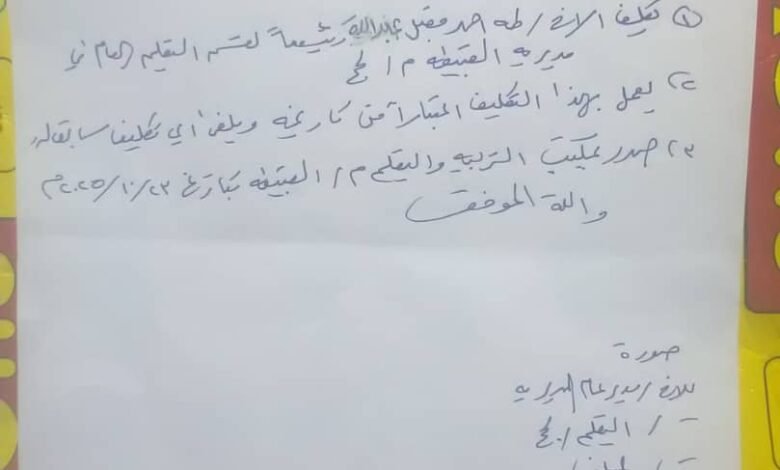 ١) تكليف الاخ / طه احمد مقبل عبدالله رئيساً لقسم التعليم العام في
مديرية القبيطه م / لحج
٢) يعمل بهذا التكليف اعتباراً من تاريخه ويلغى أي تكليف سابق له
٣) صدر بمكتب التربيه والتعليم م / القبيطه بتاريخ ٢٣/١٠/٢٠٢٥م
والله الموفق
صورة
للاخ / مدير عام المديريه
= / التعليم / لحج